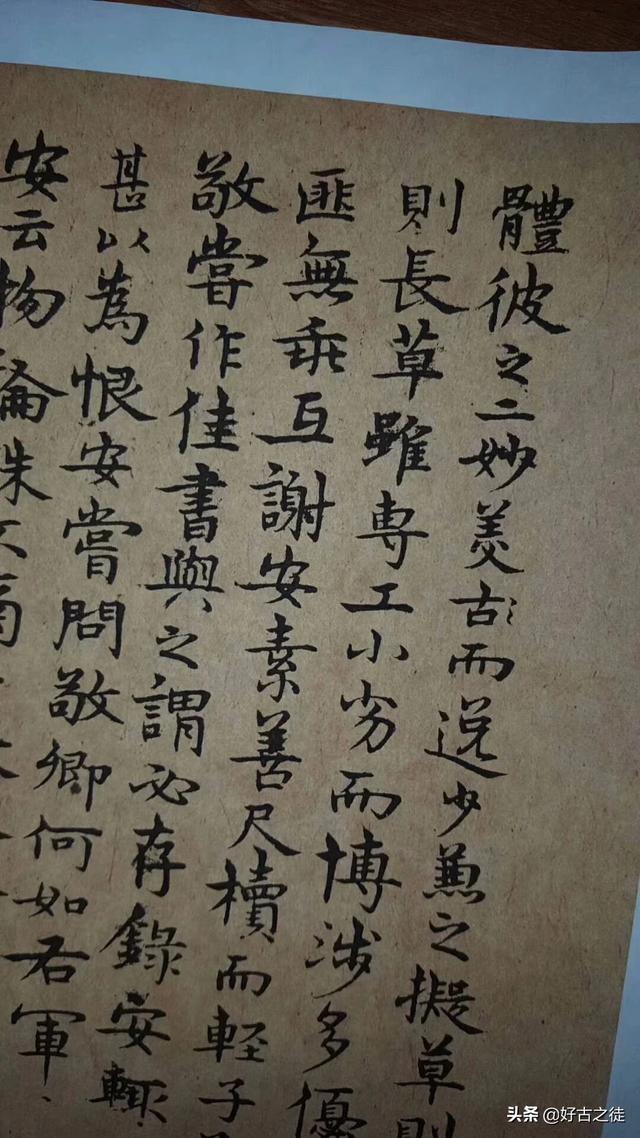 體彼之二妙羙古〻而逸少兼之擬草則
則長草雖專工小劣而博涉多優
匪無乖互謝安素善尺牘而輕子
敬嘗作佳書與之謂必存錄安輒
甚以為恨安嘗問敬卿何如右軍
安云物論殊
头条 @好古之徒